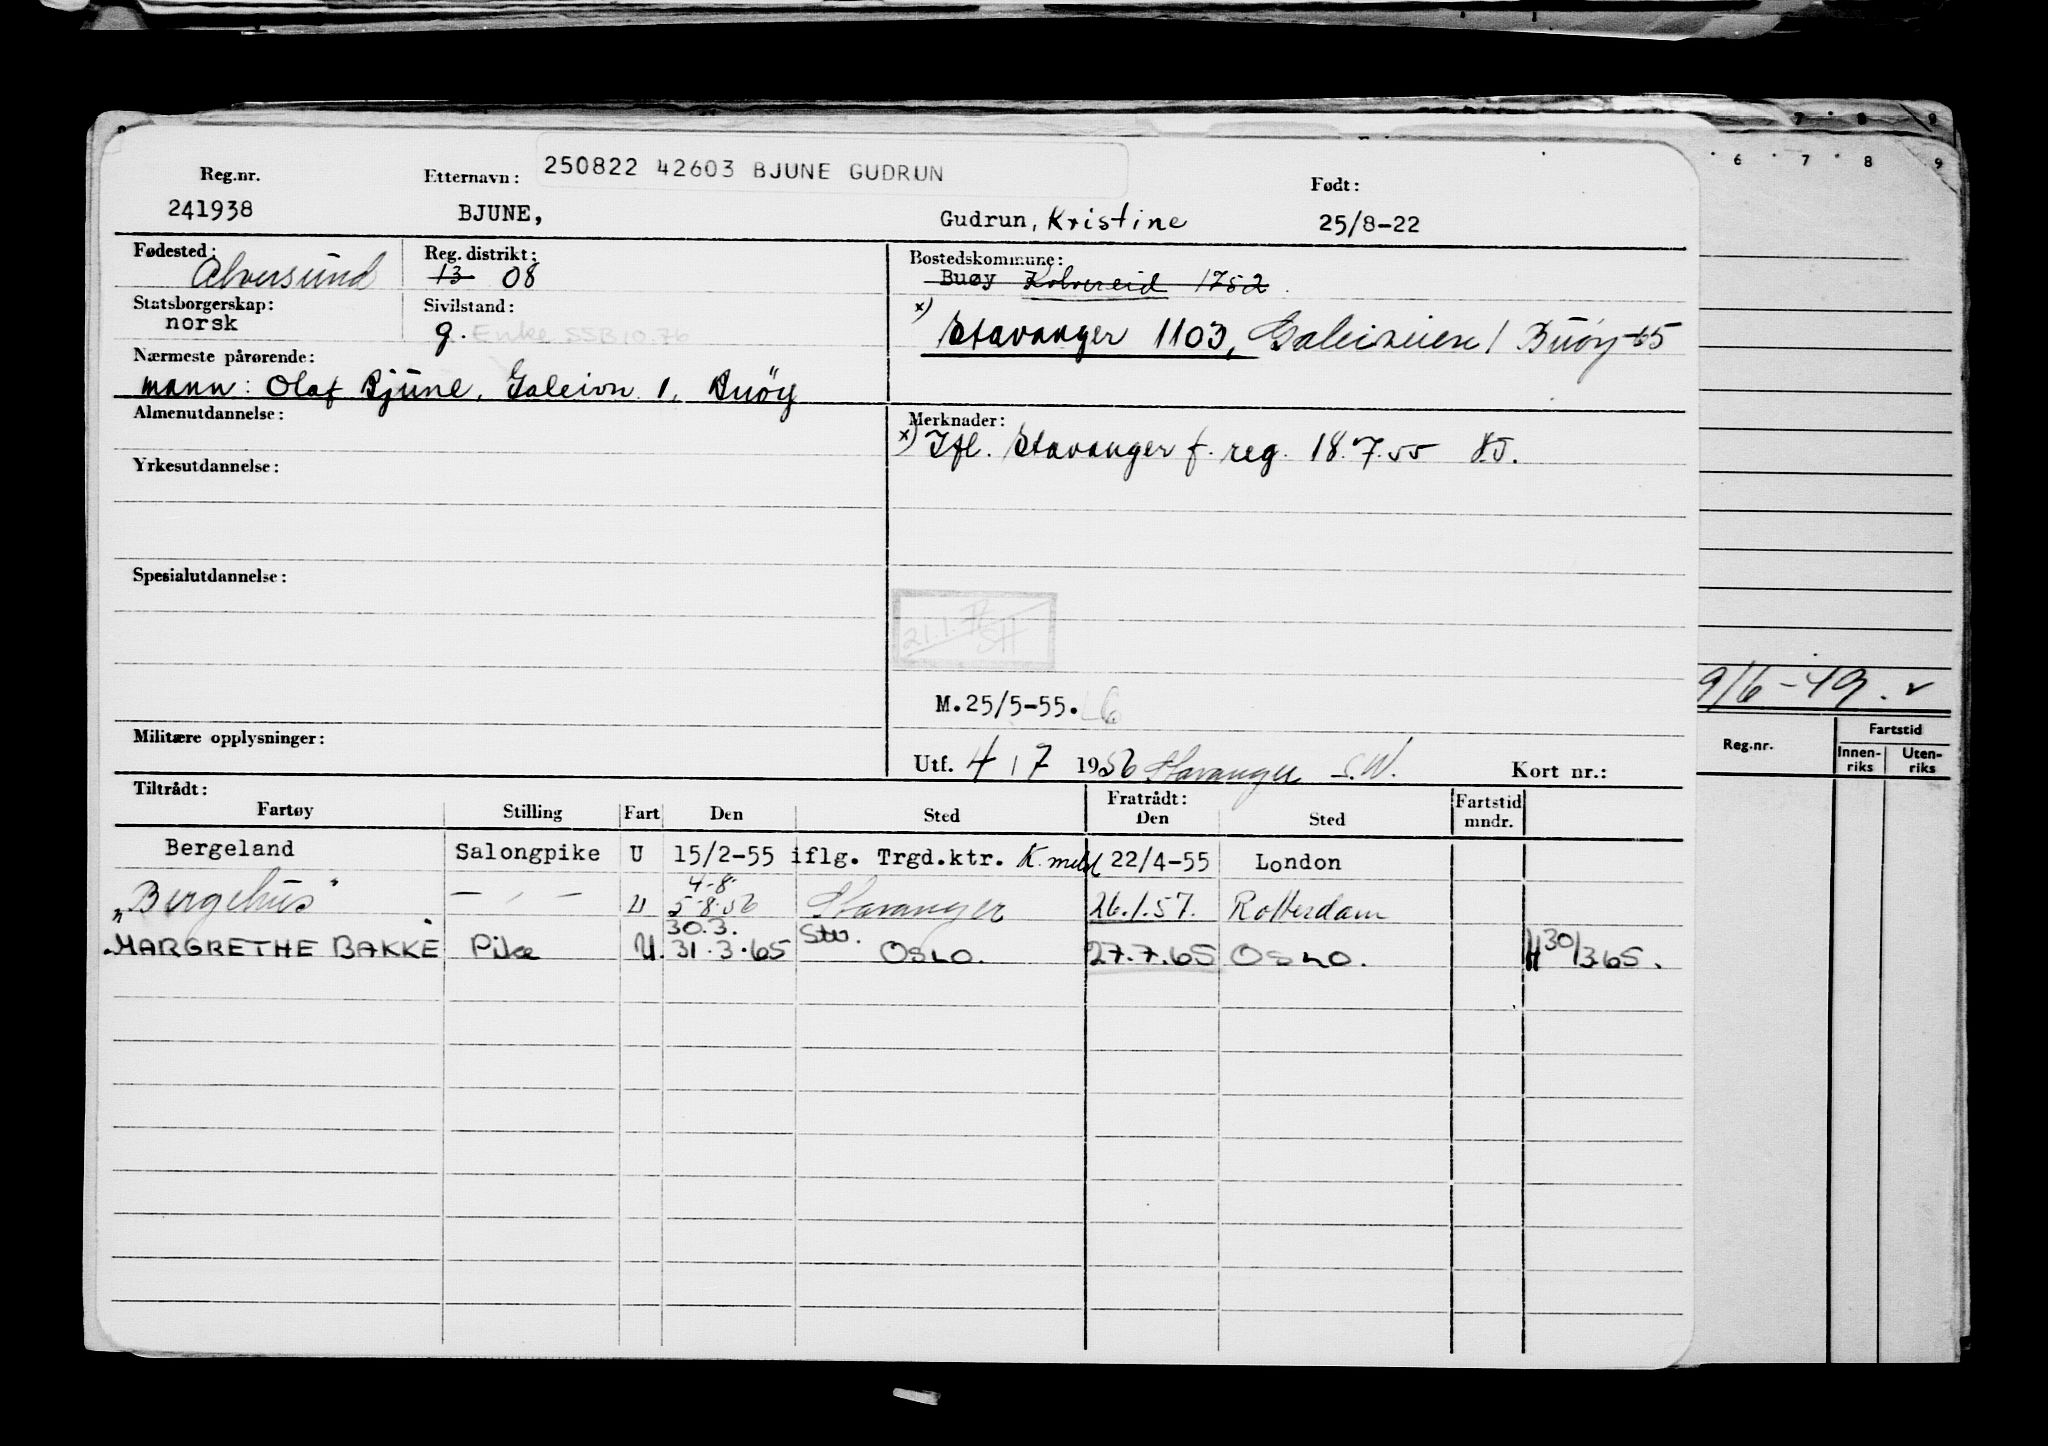 7 8 9
6 7 8 9
Reg.nr.
241938
Etternavn: 250822 42603 BJUNE GUDRUN
BJUNE,
Gudrun, Kristine
Født:
25/8-22
Fødested:
Alversund
Reg. distrikt:
13 08
Bostedskommune:
Buøy Kolvereid 1752
Statsborgerskap:
norsk
Sivilstand:
g. Enke SSB 10.76
x) Stavanger 1103, Galeiveien 1 Buøy -65
Nærmeste pårørende:
mann: Olaf Bjune, Galeivn. 1, Buøy
Almenutdannelse:
Merknader:
x) Ifl. Stavanger f. reg. 18.7.55
Yrkesutdannelse:
Spesialutdannelse:
M.25/5-55.
9/6-49. v
Militære opplysninger:
Utf. 4/7 1956 Stavanger S.W. Kort nr.:
Reg.nr. Fartstid
Innen-riks Uten-riks
Tiltrådt: Fratrådt:
Fartøy Stilling Fart Den Sted Den Sted Fartstid mndr.
Bergeland Salongpike U 15/2-55 iflg. Trgd.ktr. K. meld 22/4-55 London
4-8.
"Bergehus" — , — U 5-8.56 Stavanger 26.1.57. Rotterdam
30.3. Stv.
"MARGRETHE BAKKE Pike U. 31.3.65 OSLO. 27.7.65 OSLO. H 30/3 65.